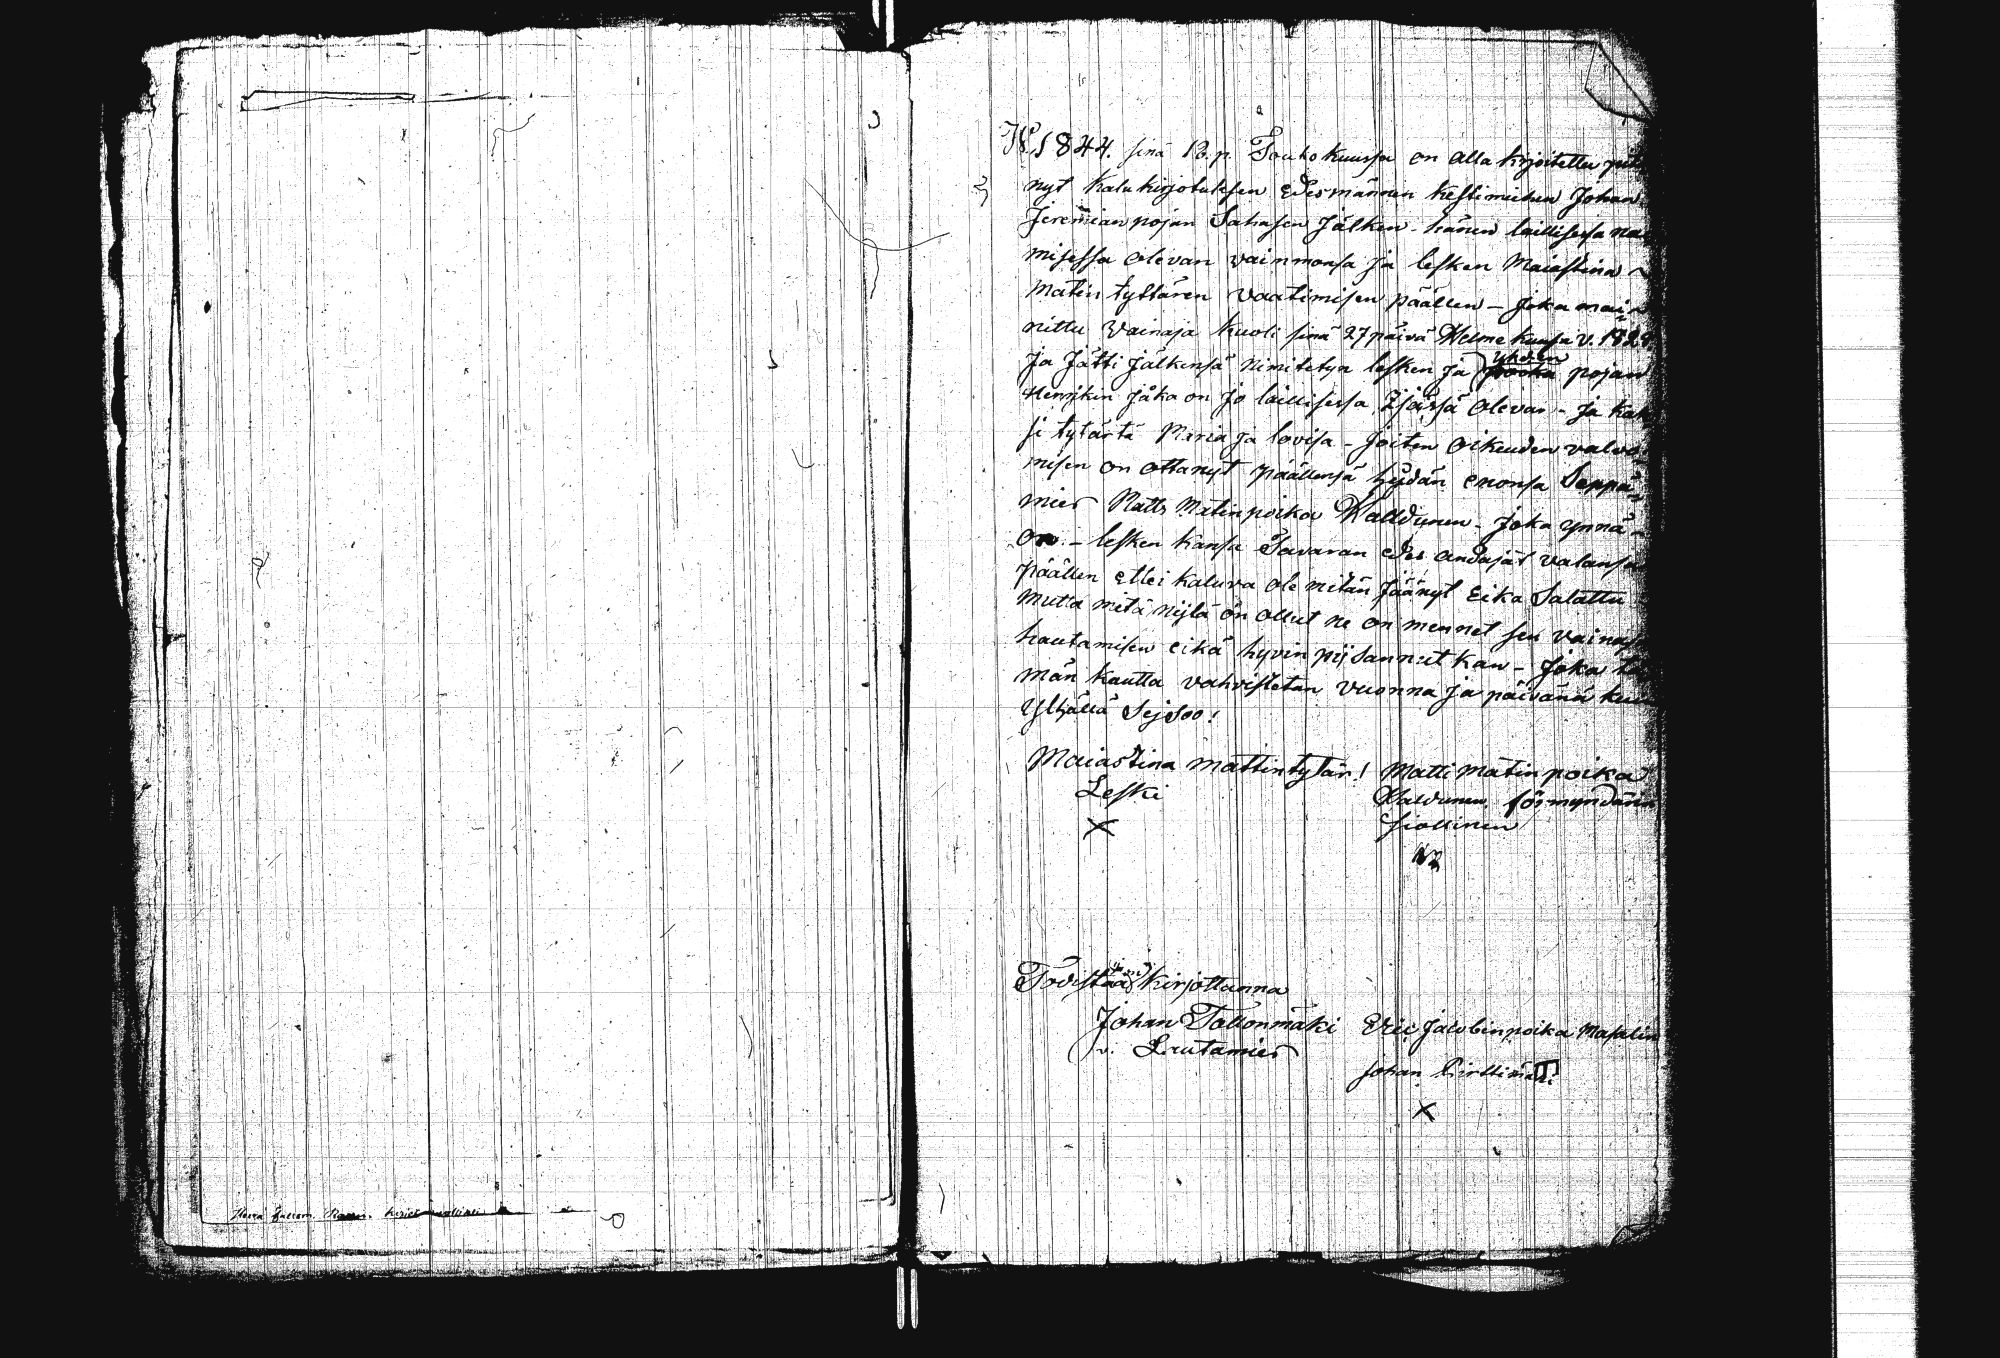 W. 1844. sinä 13. p. Toukokuussa on alla kirjoitettu pitä
nyt kalukirjotuksen Edesmännen kestimiehen Johan
Jeremian pojan Sahasen Jälken - hänen laillisessa nai
misessa olevan vainmonsa ja lesken Maiastina
Matin tyttären vaatimisen päällen - Joka mai
nittu Vainaja kuoli sinä 27 päivä Helme kuusa v.
Ja Jätti Jälkensä nimitetyn lesken ja yhden pojan
Henrikin jåka on jo laillisessa Ijässä olevan - ja kak
si tytärtä Maria ja lovisa - Joiten oikeuden valvo
misen on ottanyt päällensä heidän enonsa Seppä
mies Matts Matinpoika Walldunen - Joka ynnä
on - lesken kansa Tavaran edes andajat valansa
päällen Ettei kaluva ole mitän Jäänyt Eikä Salattu
Mutta mitä nijtä on ollut ne on mennet sen vainaja
hautamisen eikä hyvin pijsannut kan - Joka tä
män kautta vahvistetan vuonna ja päivänä kuin
Ylhällä Sejsoo!
Maiastina mattintytär! Matti matinpoika
Leski Waldunen förmyndärin
X siallinen
Todistaa kirjottanna
Johan Tollonmäki Eric Jacobinpoika Matalin
v. Lautamies
Johan Pirttimäki
X